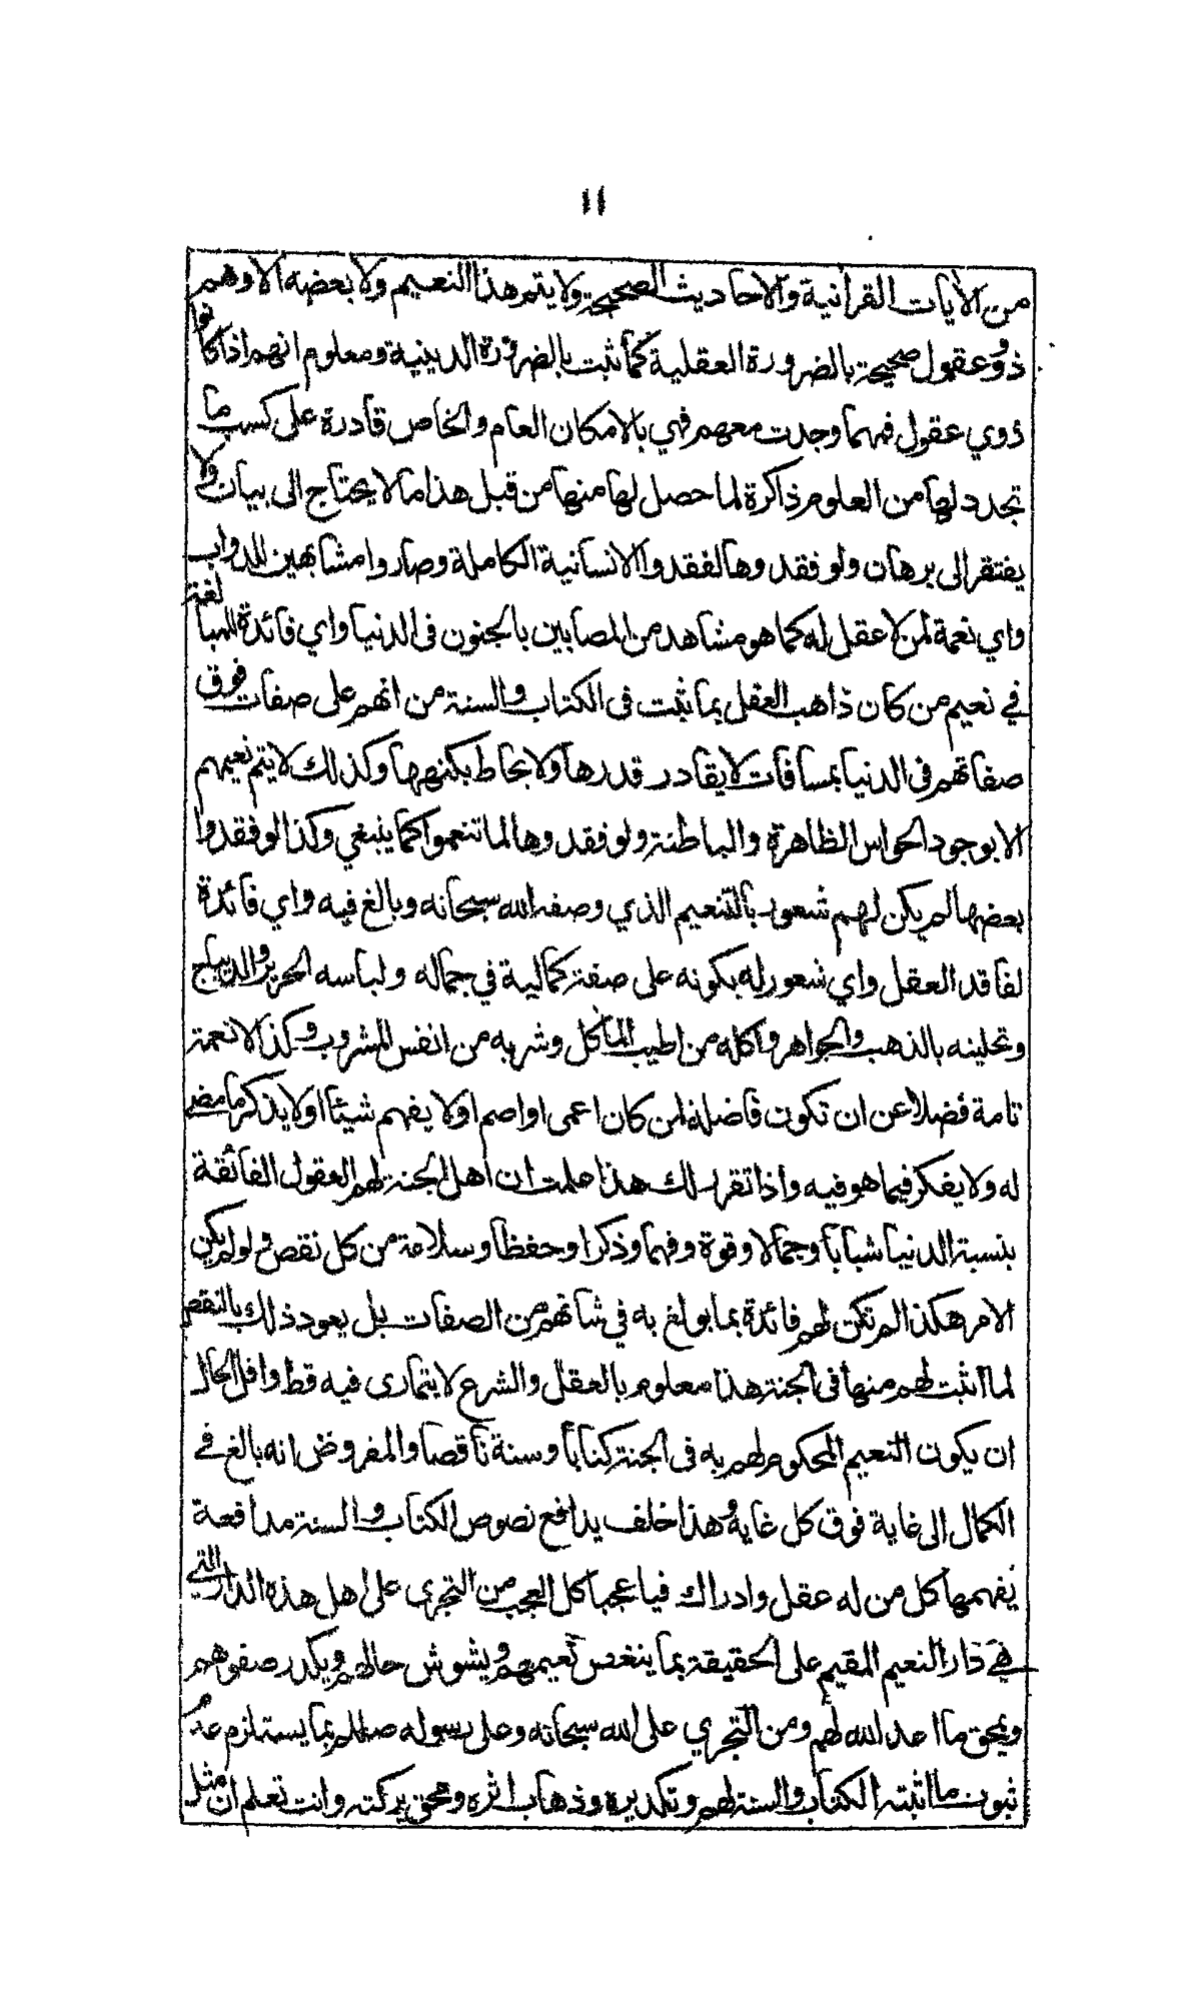 ١١
من الآيات القرآنية والأحاديث الصحيحة ولا يتم هذا النعيم ولا بعضه الا وهم
ذوو عقول صحيحة بالضرورة العقلية كما ثبت بالضرورة الدينية ومعلوم انهم اذا كانوا
ذوي عقول فهما وجدت معهم فهي بالامكان العام والخاص قادرة على كسب ما
تجدد لها من العلوم ذاكرة لما حصل لها منها من قبل هذا ما لا يحتاج الى بيان ولا
يفتقر الى برهان ولو فقدوها لفقدوا الانسانية الكاملة وصاروا مشابهين للدواب
واي نعمة لمن لا عقل له كما هو مشاهد من المصابين بالجنون في الدنيا واي فائدة للمبالغة
في نعيم من كان ذاهب العقل بما ثبت في الكتاب والسنة من انهم على صفات فوق
صفاتهم في الدنيا بمسافات لا يقادر قدرها ولا يحاط بكنهها وكذلك لا يتم نعيمهم
الا بوجود الحواس الظاهرة والباطنة ولو فقدوها لما تنعموا كما ينبغي وكذا لو فقدوا
بعضها لم يكن لهم شعور بالنعيم الذي وصفه الله سبحانه وبالغ فيه واي فائدة
لفاقد العقل واي شعور له بكونه على صفة كمالية في جماله ولباسه الحرير والديباج
وتحليته بالذهب والجواهر واكله من اطيب المأكل وشربه من انفس المشروب وكذا لا نعمة
تامة فضلا عن ان تكون فاضلة لمن كان اعمى او اصم او لا يفهم شيئا او لا يذكر ما مضى
له ولا يفكر فيما هو فيه واذا تقرر لك هذا علمت ان اهل الجنة لهم العقول الفائقة
بنسبة الدنيا شبابا وجمالا وقوة وفهما وذكرا وحفظا وسلامة من كل نقص ولو لم يكن
الامر هكذا لم تكن لهم فائدة بما بولغ به في شانهم من الصفات بل يعود ذلك بالنقص
لما اثبت لهم منها في الجنة هذا معلوم بالعقل والشرع لا يتمارى فيه قط واقل الحال
ان يكون النعيم المحكوم لهم به في الجنة كتابا وسنة ناقصا والمفروض انه بالغ في
الكمال الى غاية فوق كل غاية وهذا خلف يدافع نصوص الكتاب والسنة مدافعة
يفهمها كل من له عقل وادراك فيا عجبا كل العجب من التجري على اهل هذه الدار التي
هي دار النعيم المقيم على الحقيقة بما ينغص نعيمهم ويشوش حالهم ويكدر صفوهم
ويمحق ما اعد الله لهم ومن التجري على الله سبحانه وعلى رسوله صللم بما يستلزم عدم
ثبوت ما اثبته الكتاب والسنة لهم وتكديره وذهاب اثره ومحق بركته وانت تعلم ان مثل